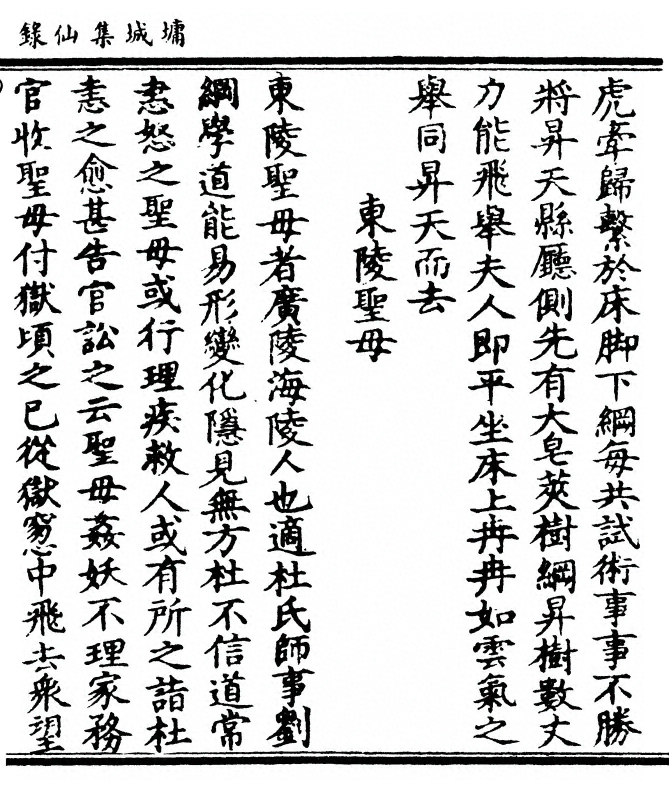 墉城集仙錄
虎牽歸繫於床脚下綱每共試術事事不勝
將昇天縣廳側先有大皂莢樹綱昇樹數丈
力能飛舉夫人即平坐床上冉冉如雲氣之
舉同昇天而去
東陵聖母
東陵聖母者廣陵海陵人也適杜氏師事劉
綱學道能易形變化隱見無方杜不信道常
恚怒之聖母或行理疾救人或有所之詣杜
恚之愈甚告官訟之云聖母姦妖不理家務
官收聖母付獄頃之已從獄窻中飛去衆望